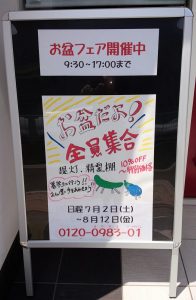 お盆フェア開催中
9:30～17:00まで
お盆だよ!
全員集合
提灯、精霊棚
10%OFF
～特別価格
日程7月2日(土)
～8月12日(金)
0120-0983-01